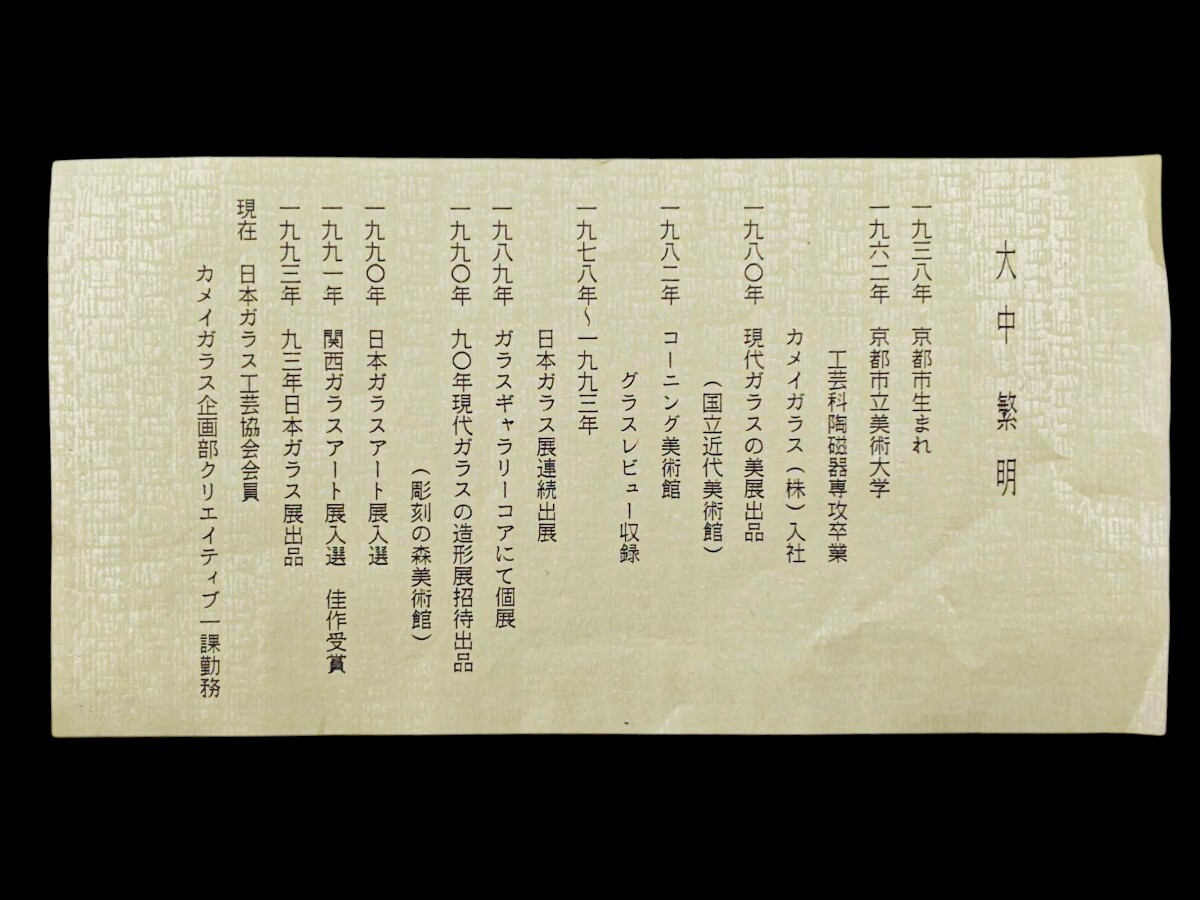 大中繁明
一九三八年 京都市生まれ
一九六二年 京都市立美術大学
工芸科陶磁器専攻卒業
カメイガラス(株)入社
一九八〇年 現代ガラスの美展出品
(国立近代美術館)
一九八二年 コーニング美術館
グラスレビュー収録
一九七八年～一九九三年
日本ガラス展連続出展
一九八九年 ガラスギャラリーコアにて個展
一九九〇年 九〇年現代ガラスの造形展招待出品
(彫刻の森美術館)
一九九〇年 日本ガラスアート展入選
一九九一年 関西ガラスアート展入選 佳作受賞
一九九三年 九三年日本ガラス展出品
現在 日本ガラス工芸協会会員
カメイガラス企画部クリエイティブ一課勤務